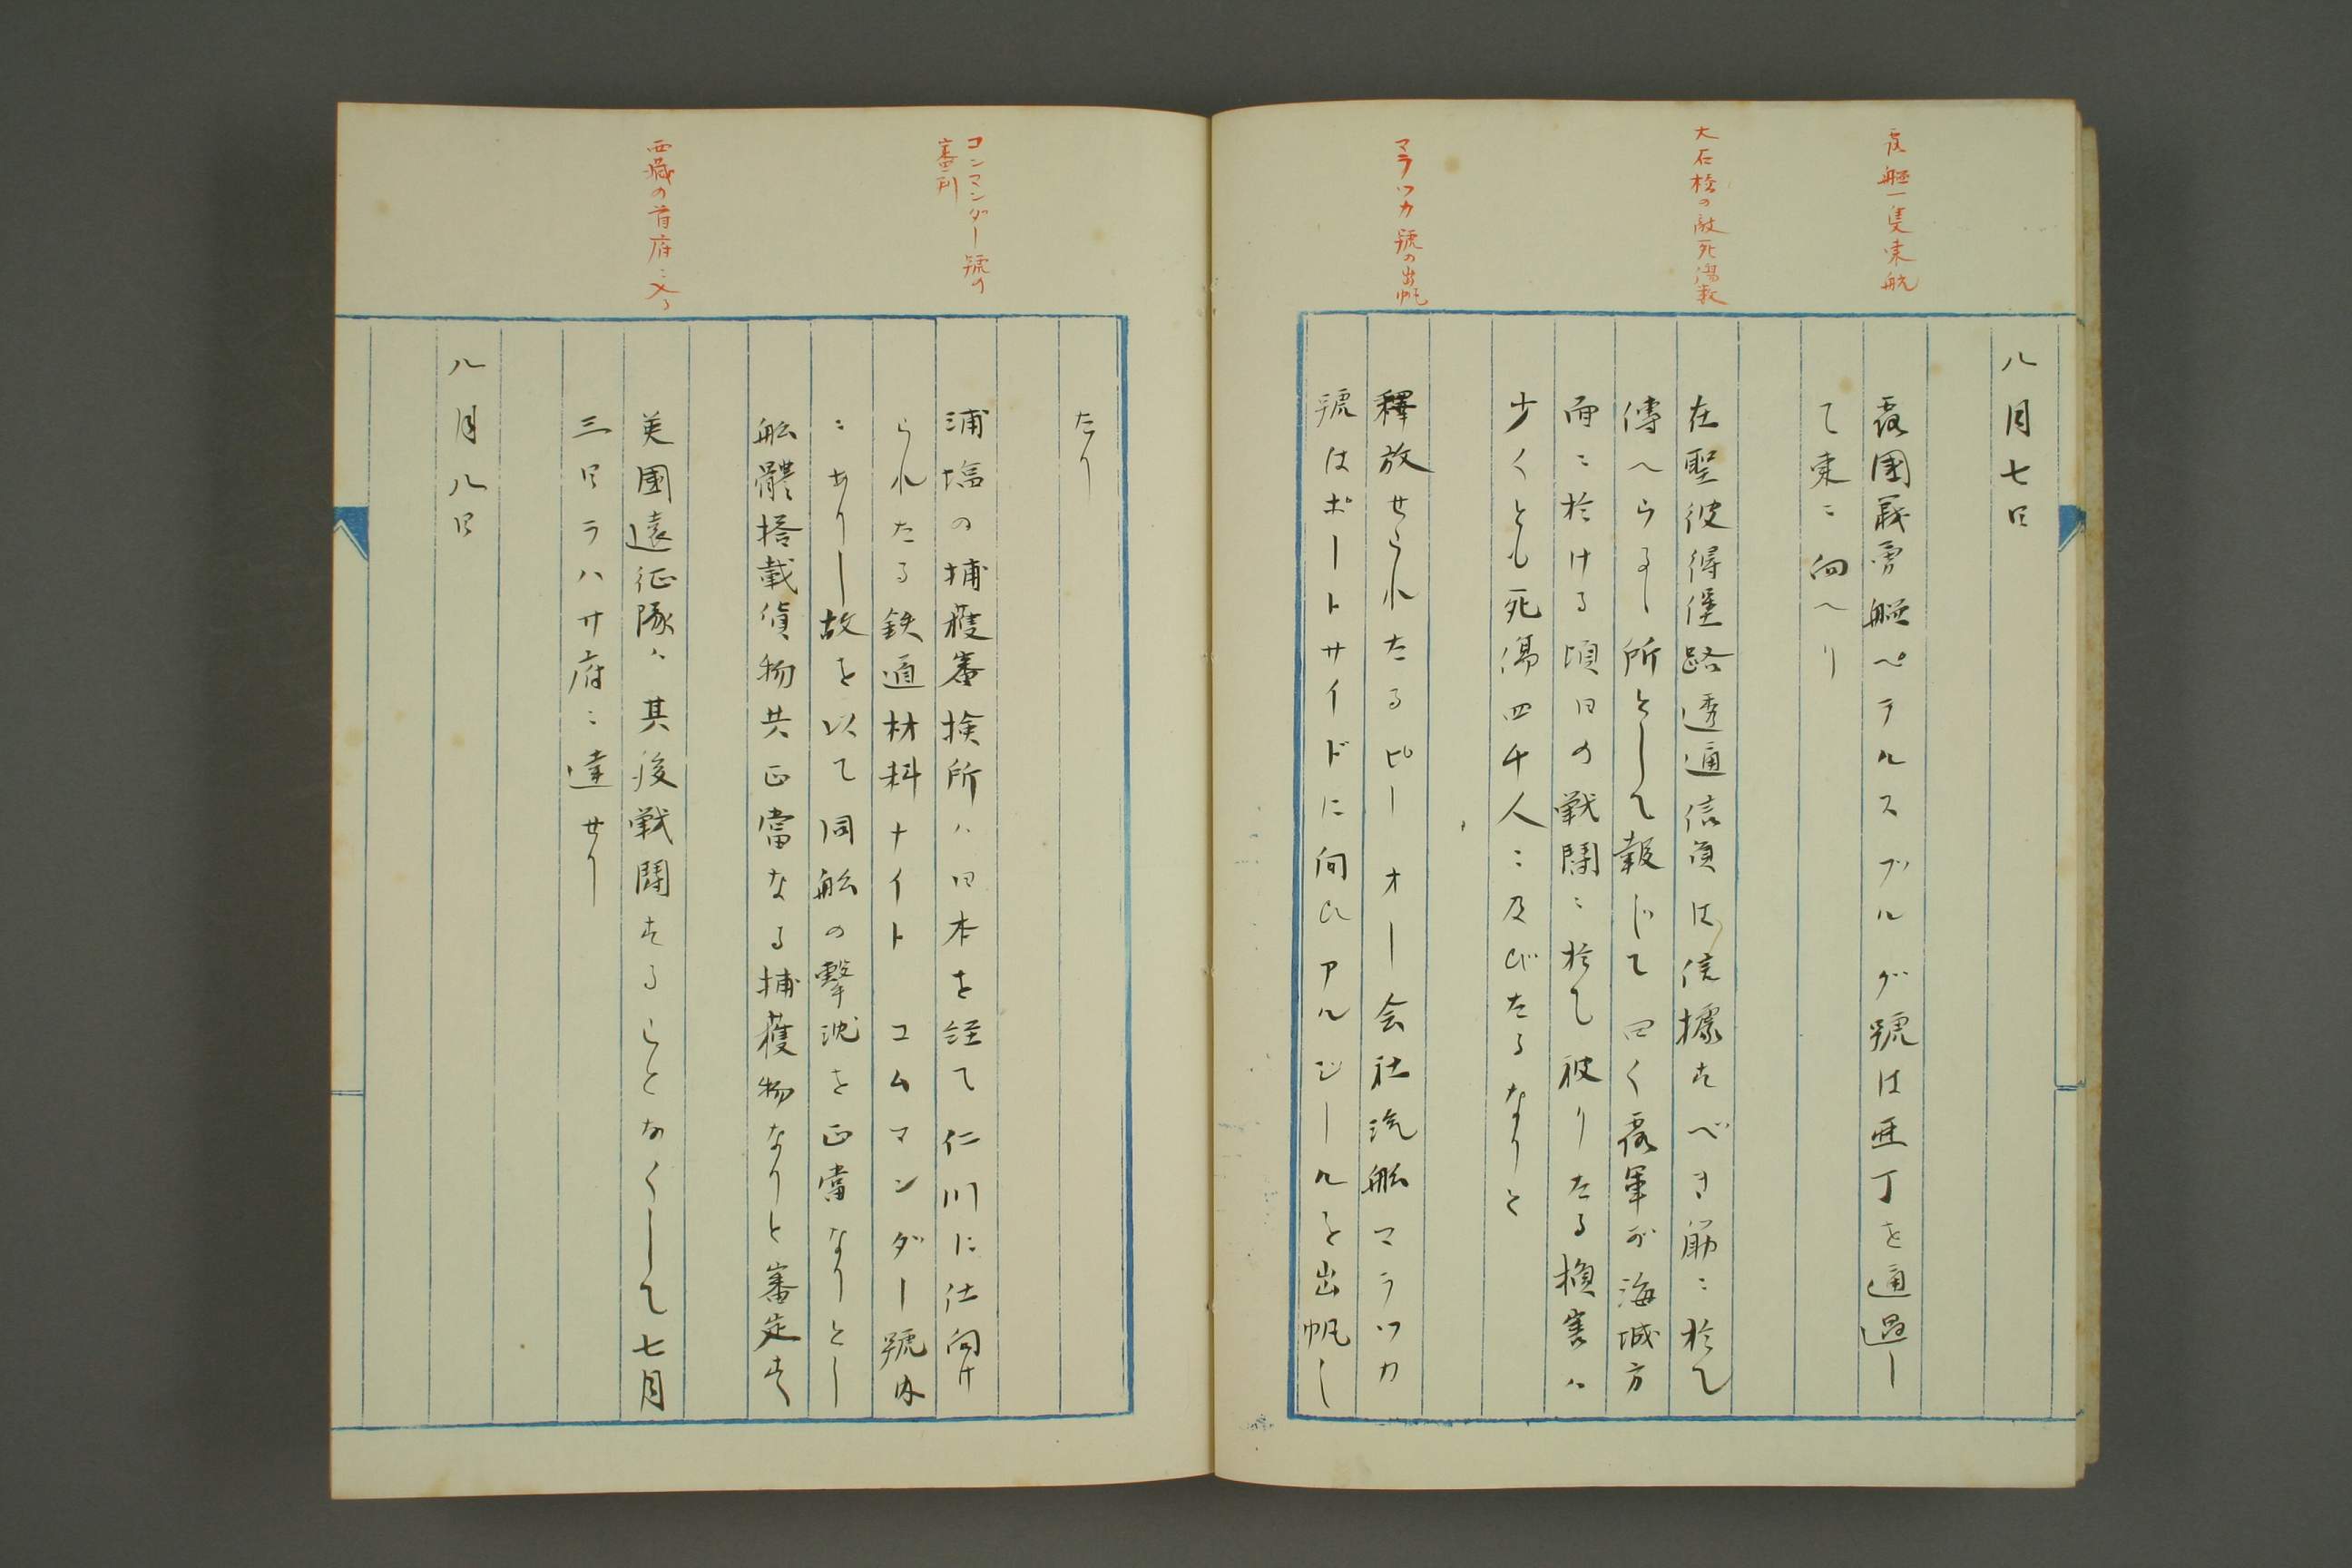 露艦一隻東航
大石橋の敵死傷数
マラッカ號の出帆
八月七日
露國義勇艦ペテルスブルグ號は亜丁を通過し
て東に向へり
在聖彼得堡路透通信員は信據すべき筋に於て
傳へらるゝ所として報じて曰く露軍が海城方
面に於ける頃日の戦闘に於て被りたる損害ハ
少くとも死傷四千人に及びたるなりと
釋放せられたるピー オー会社汽船マラッカ
號はポートサイドに向ひアルジールを出帆し
コンマンダー號の
審判
西蔵の首府に入る
たり
浦塩の捕獲審検所ハ日本を経て仁川に仕向け
られたる鉄道材料ナイト コムマンダー號内
にありし故を以て同船の撃沈を正當なりとし
船體搭載貨物共正當なる捕獲物なりと審定す
英國遠征隊ハ其後戦闘することなくして七月
三日ラハサ府に達せり
八月八日